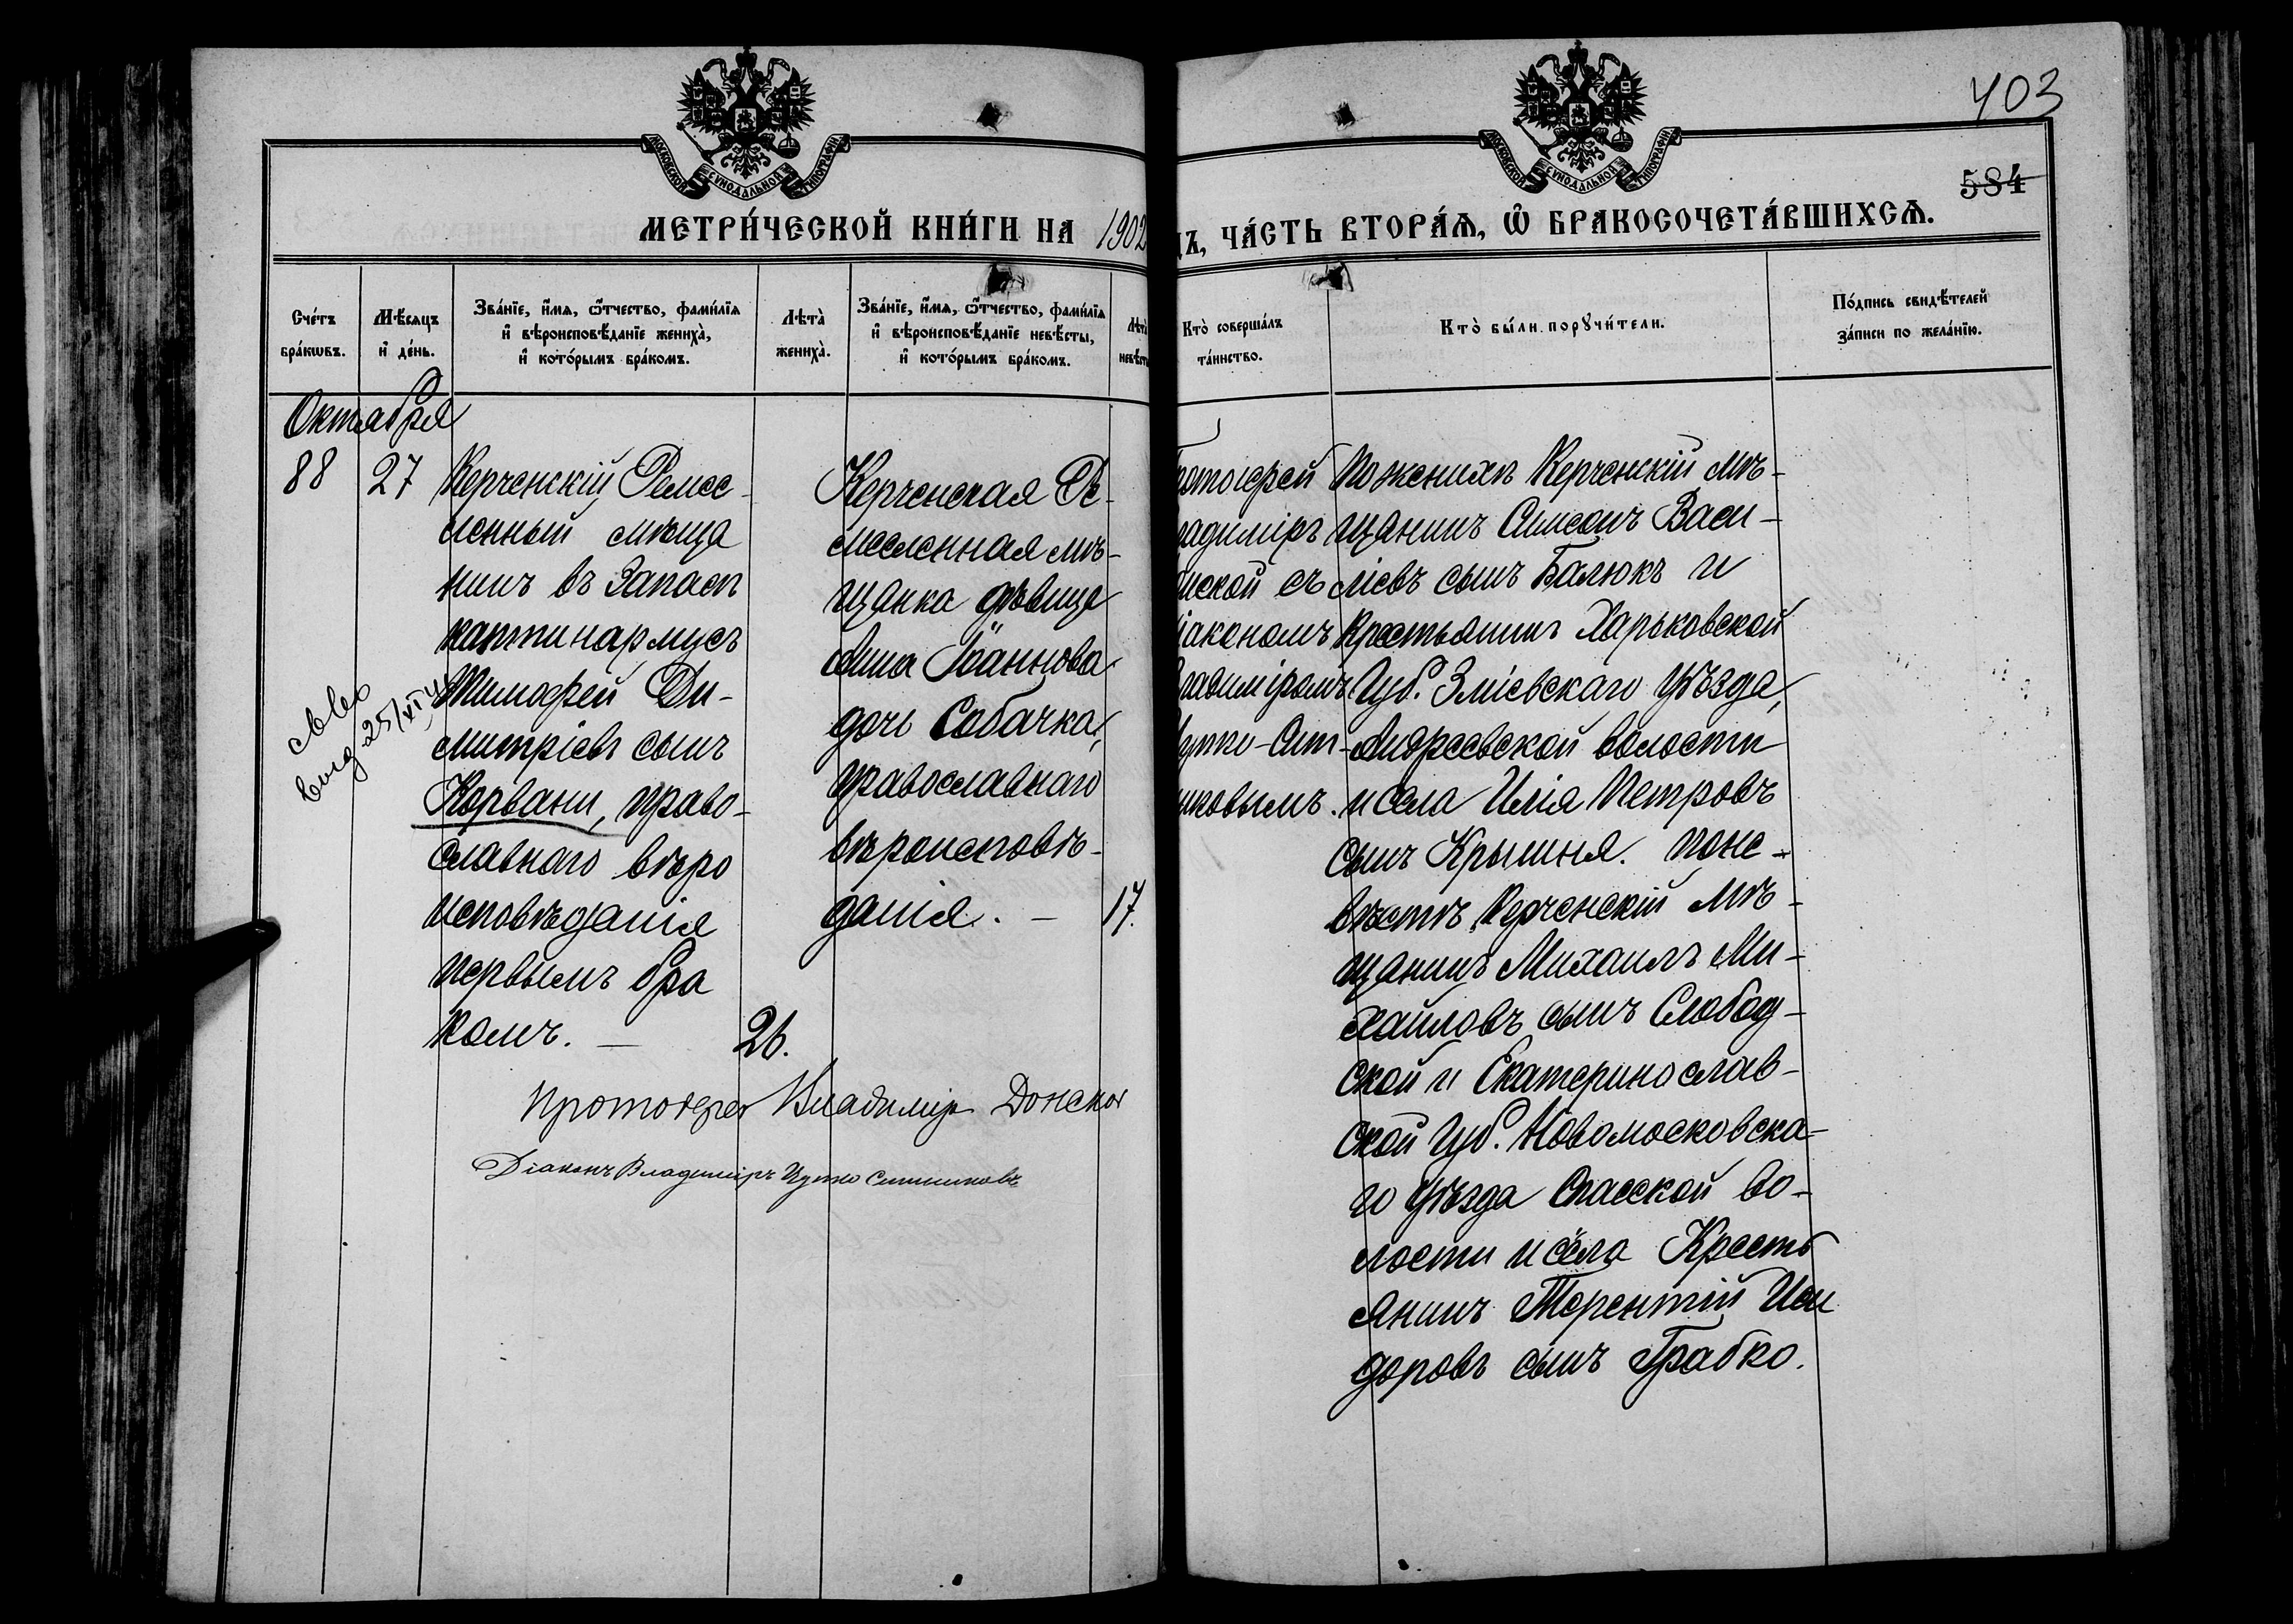 403
584
МОСКОВСКОЙ СѴНОДАЛЬНОЙ ТИПОГРАФІИ
МОСКОВСКОЙ СѴНОДАЛЬНОЙ ТИПОГРАФІИ
МЕТРИ́ЧЕСКОЙ КНИ́ГИ НА 1902
ДЪ, ЧА́СТЬ ВТОРА́Ѧ, Ѽ БРАКОСОЧЕТА́ВШИХСѦ.
Сче́тъ бра́кѡвъ.
Мѣ́сяцъ и҆ де́нь.
Зва́нїе, и҆́мя, ѻ҆́тчество, фами́лїя
и҆ вѣроисповѣ́данїе жениха̀,
и҆ кото́рымъ бра́комъ.
Лѣта̀ жениха̀.
Зва́нїе, и҆́мя, ѻ҆́тчество, фами́лїя
и҆ вѣроисповѣ́данїе невѣ́сты,
и҆ кото́рымъ бра́комъ.
Лѣта̀
невѣ́ст
Кто̀ соверша́лъ
та́инство.
Кто̀ бы́ли порꙋчи́тели.
По́дпись свидѣ́телей
за́писи по жела́нїю.
Октября
88
27
Керченскій Ремес-
ленный мѣща
нинъ въ Запасѣ
каптинармусъ
Тимофей Ди-
митріевъ сынъ
Корвани, право-
славнаго вѣро
исповѣданія
первымъ бра
комъ. —
26.
Керченская Ре-
месленная мѣ-
щанка дѣвица
Анна Іоаннова
дочь Собачка,
православнаго
вѣроисповѣ-
данія. —
17.
выд 25/XI
Протоіерей Владиміръ Донской
Діаконъ Владиміръ Путко Ситниковъ
ротоіерей
ладиміръ
нской съ
іакономъ
ладиміромъ
утко-Сит-
никовымъ.
По женихѣ Керченскій мѣ-
щанинъ Симеонъ Васи-
ліевъ сынъ Балюкъ и
Крестьянинъ Харьковской
Губ. Зміевскаго уѣзда,
Андреевской волости
и села Илія Петровъ
сынъ Крышня. По не-
вѣстѣ Керченскій Мѣ-
щанинъ Михаилъ Ми-
хайловъ сынъ Слобод-
ской и Екатеринослав-
ской Губ. Новомосковска-
го уѣзда Спасской во-
лости и села Кресть
янинъ Терентій Иси
доровъ сынъ Грабко.